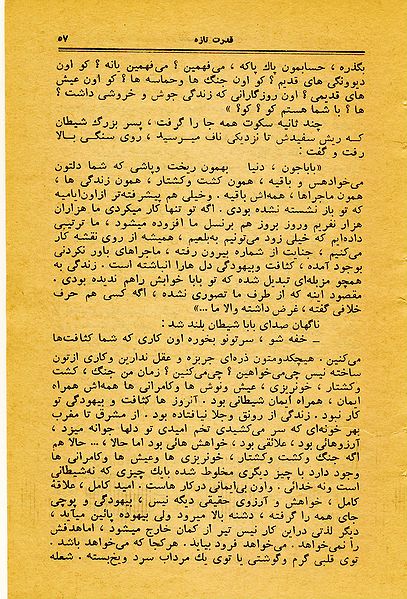 قدرت تازه ۵۷
بگذره ، حسابمون پاك پاكه ، می‌فهمین ؟ می‌فهمین یانه ؟ کو اون
دیوونگی های قدیم ؟ کو اون جنگ ها وحماسه ها ؟ کو اون عیش
های قدیمی ؟ اون روزگارانی که زندگی جوش و خروشی داشت ؟
ها ؟ با شما هستم کو ؟ کو؟ »
چند ثانیه سکوت همه جا را گرفت ، پسر بزرگ شیطان
که ریش سفیدش تا نزدیکی ناف میرسید ، روی سنگی بالا
رفت و گفت :
«باباجون ، دنیا بهمون ریخت وپاشی که شما دلتون
می‌خوادهس و باقیه ، همون کشت وکشتار ، همون زندگی ها ،
همون ماجراها ، همه‌اش باقیه . وخیلی هم پیشرفته‌تر ازاون‌ایامیه
که تو باز نشسته نشده بودی . اگه تو تنها کار میکردی ما هزاران
هزار نفریم وروز بروز هم برنسل ما افزوده میشود ، ما ترتیبی
داده‌ایم که خیلی زود می‌تونیم به‌بلعیم ، همیشه از روی نقشه کار
می‌کنیم ، جنایت از شماره بیرون رفته ، ماجراهای باور نکردنی
بوجود آمده ، کثافت وبیهودگی دل هارا انباشته است . زندگی به
همچو مزبله‌ای تبدیل شده که تو بابا خوابش راهم ندیده بودی .
مقصود اینه که از طرف ما تصوری نشده ، اگه کسی هم حرف
خلافی گفته ، غرض داشته والا ما ...»
ناگهان صدای بابا شیطان بلند شد :
ـ خفه شو ، سرتونو بخوره اون کاری که شما کثافت‌ها
می‌کنین . هیچکدومتون ذره‌ای جربزه و عقل ندارین وکاری ازتون
ساخته نیس چی‌می‌خواهین ؟ چی‌می‌کنین ؟ زمان من جنگ ، کشت
وکشتار ، خونریزی ، عیش ونوش ها وکامرانی ها همه‌اش همراه
ایمان ، همراه ایمان شیطانی بود . آنروز ها کثافت و بیهودگی تو
کار نبود . زندگی از رونق وجلا نیافتاده بود . از مشرق تا مغرب
بهر خونه‌ای که سر می‌کشیدی تخم امیدی تو دلها جوانه میزد ،
آرزوهائی بود ، علائقی بود ، خواهش هائی بود اما حالا ، ... حالا هم
اگه جنگ وکشت وکشتار ، خونریزی ها وعیش ها وکامرانی ها
وجود دارد با چیز دیگری مخلوط شده بایك چیزی که نه‌شیطانی
است ونه خدائی . واون بی‌ایمانی درکار هاست . امید کامل ، علاقهٔ
کامل ، خواهش و آرزوی حقیقی دیگه نیس ، بیهودگی و پوچی
جای همه را گرفته ، دشنه بالا میرود ولی بیهوده پائین میآید ،
دیگر لذتی دراین کار نیس تیر از کمان خارج میشود ، اماهدفش
را نمی‌خواهد . می‌خواهد فرود بیاید . هرکجا که می‌خواهد باشد .
توی قلبی گرم وگوشتی یا توی یك مرداب سرد ویخ‌بسته . شعله